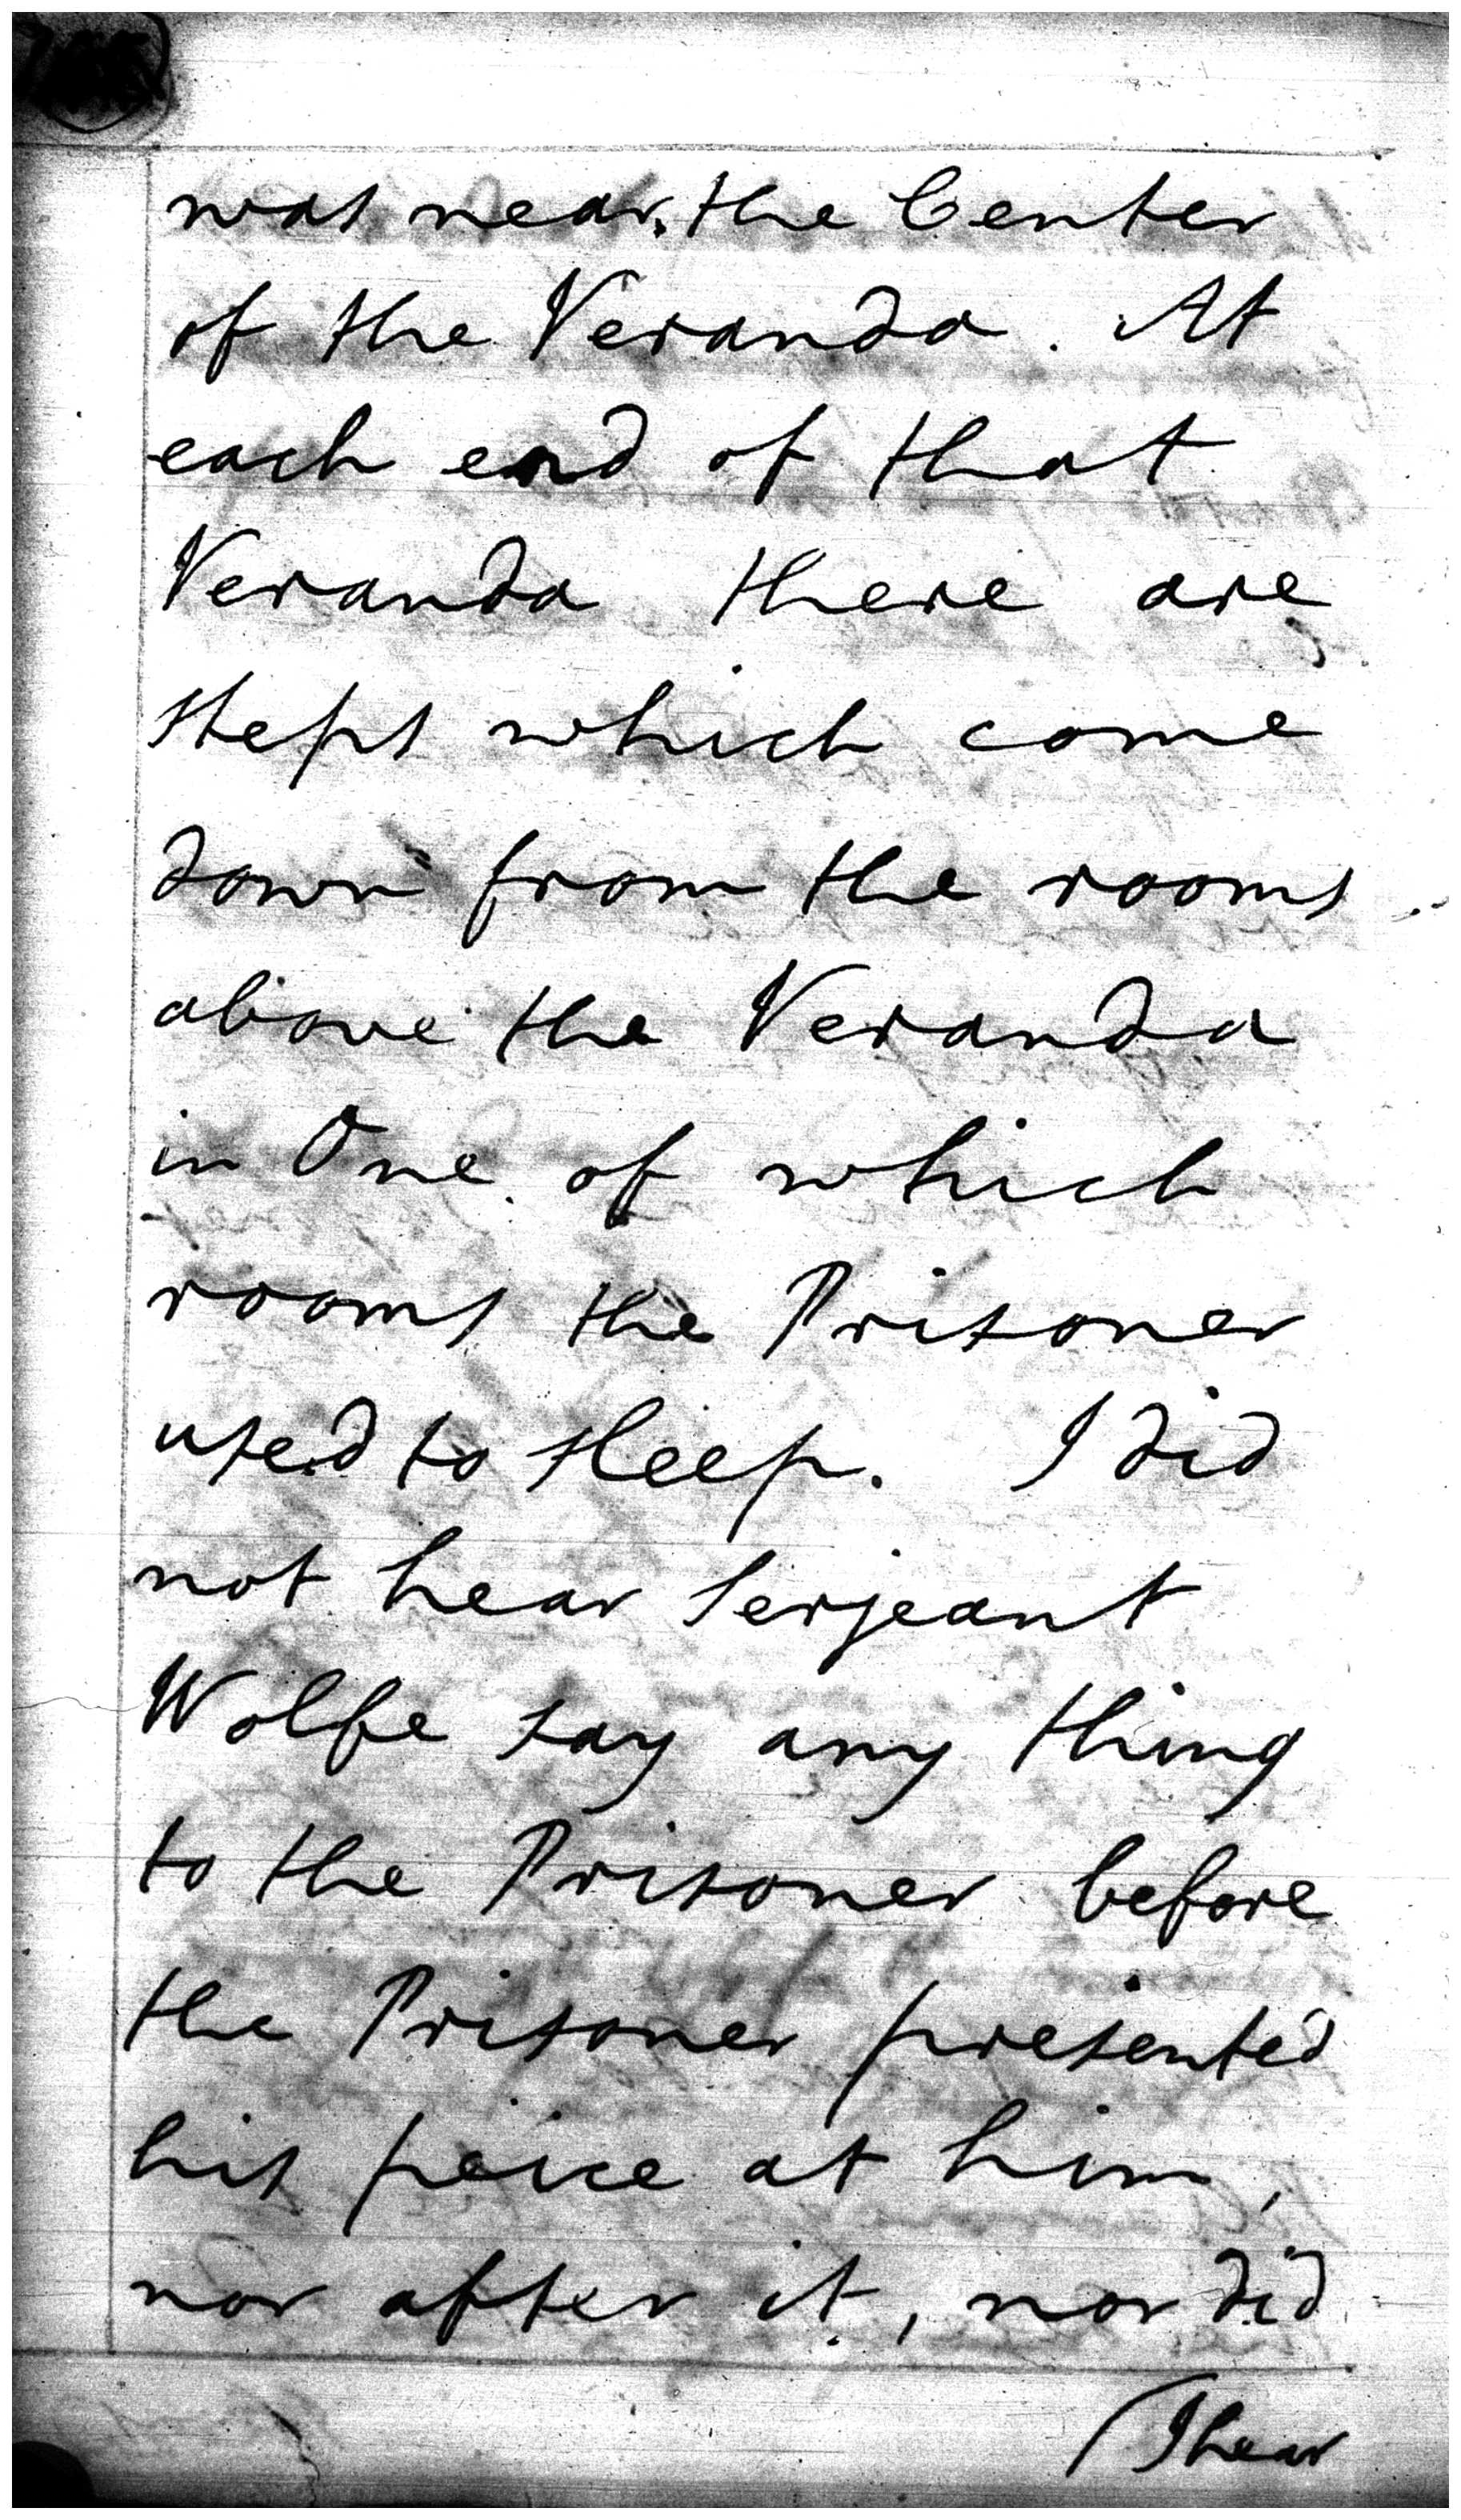 was near the Center
of the Veranda. At
each end of that
Veranda there are
steps which come
down from the rooms
above the Veranda
in One of which
rooms the Prisoner
used to sleep. I did
not hear Serjeant
Wolfe say any thing
to the Prisoner before
the Prisoner presented
his peice at him,
nor after it, nor did
(I hear